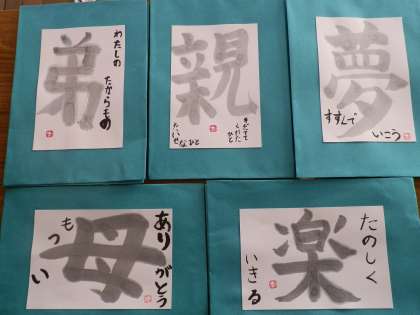 弟
わたしの
たからもの
親
そだてて
くれた
ひと
たいせつ
なひと
夢
すすんで
いこう
母
いつも
ありがとう
楽
たのしく
いきる